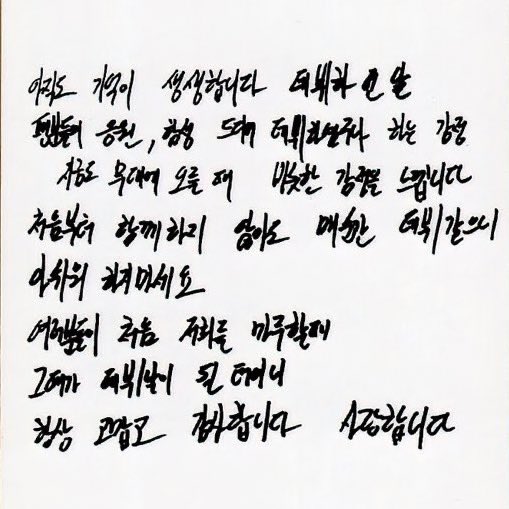 아직도 기억이 생생합니다 데뷔하던 날
팬분들의 응원, 함성 드디어 데뷔하는구나 하는 감정
지금도 무대에 오를 때 비슷한 감정을 느낍니다
처음부터 함께하지 않아도 매순간 데뷔같으니
아쉬워 하지마세요
여러분들이 처음 저희를 마주할때
그때가 데뷔날이 될 테니
항상 고맙고 감사합니다 사랑합니다